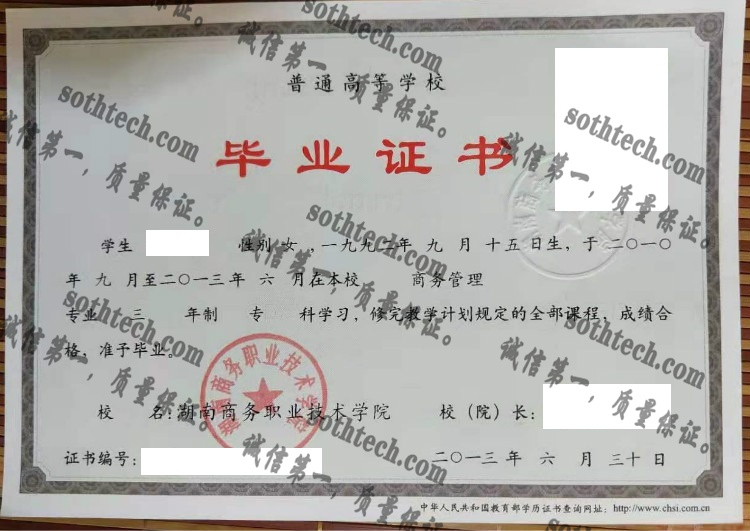 普通高等学校
毕业证书
学生 性别 女 ,一九九二年 九 月 十五 日生,于 二〇一〇
年 九 月至二〇一三年 六 月在本校 商务管理
专业 三 年制 专 科学习,修完教学计划规定的全部课程,成绩合
格,准予毕业。
校 名:湖南商务职业技术学院 校(院)长:
证书编号: 二〇一三 年 六 月 三十 日
中华人民共和国教育部学历证书查询网址:http://www.chsi.com.cn
湖南商务职业技术学院
sothtech.com
诚信第一,质量保证。
sothtech.com
诚信第一,质量保证。
sothtech.com
诚信第一,质量保证。
sothtech.com
诚信第一,质量保证。
sothtech.com
诚信第一,质量保证。
sothtech.com
诚信第一,质量保证。
sothtech.com
诚信第一,质量保证。